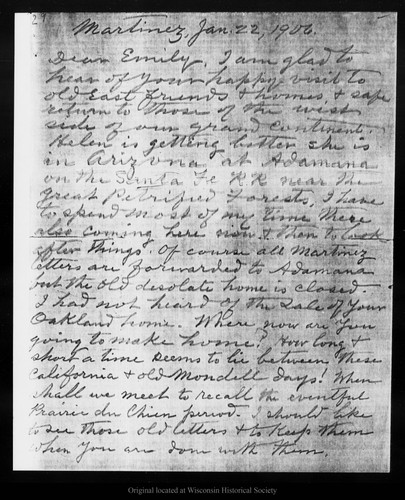 Martinez, Jan. 22, 1906.
Dear Emily, I am glad to
hear of your happy visit to
old East friends & homes & safe
return to those of the west
side of our grand continent.
Helen is getting better she is
in Arizona at Adamana
on the Santa Fe R.R. near the
great Petrified Forests. I have
to spend most of my time there
also coming here now & then to look
after things. Of course all Martinez
letters are forwarded to Adamana
but the old desolate home is closed
I had not heard of the sale of your
Oakland home. Where now are you
going to make home? How long &
short a time seems to lie between these
California & old Mondell days! When
shall we meet to recall the eventful
Prairie du Chien period. I should like
to see those old letters & to keep them
when you are done with them.
Original located at Wisconsin Historical Society